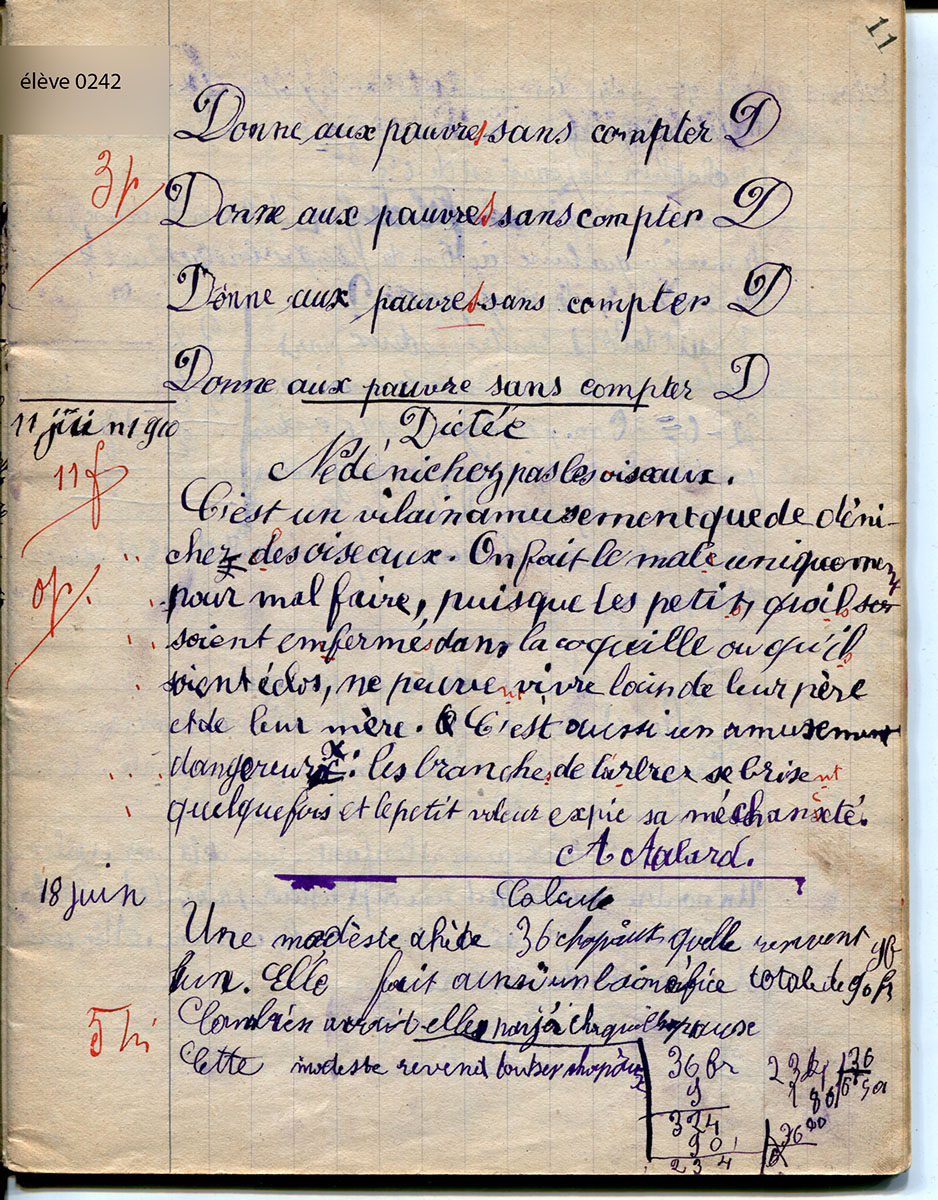 11
élève 0242
Donne aux pauvres sans compter D
3p
Donne aux pauvres sans compter D
Donne aux pauvres sans compter D
Donne aux pauvre sans compter D
11 juin 1910
Dictée
Ne dénichez pas les oiseaux.
11f
C'est un vilain amusement que de déni-
cher des oiseaux. On fait le male uniquement
0p.
pour mal faire, puisque les petits, quoils
soient enfermés dans la coquille ou qu'ils
soient éclos, ne peuvent vivre loin de leur père
et de leur mère. C'est aussi un amusement
dangereux : les branches de l'arbrer se brisent
quelquefois et le petit voleur expie sa méchanceté.
A Aalard.
18 juin
Calcul
Une modèste 36 chapaux quelle revent
lun. Elle fait ainsi un bénéfice totale de 90 fr
5 bi
Combien elle chaque
Cette modeste revend 36 fr
9
324
90
234